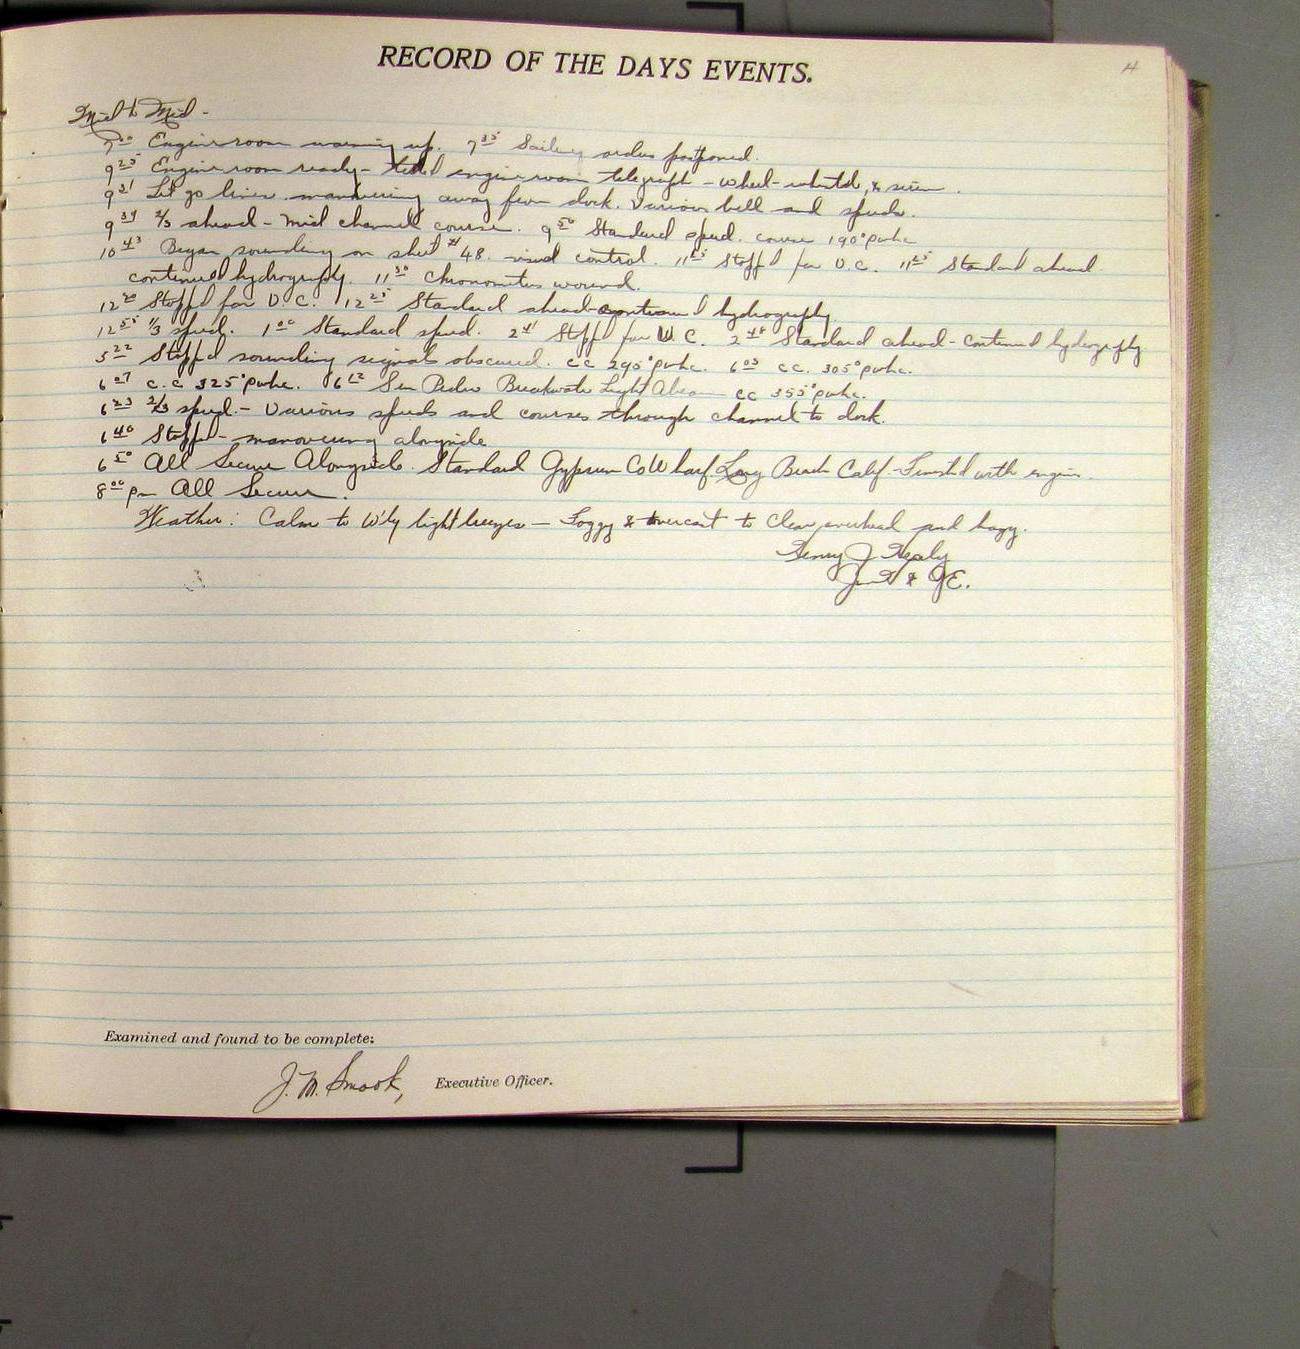 RECORD OF THE DAYS EVENTS.
4
Mid to Mid -
7 00 Engine room warming up. 7 35 Sailing orders postponed.
9 25 Engine room ready - tested engine room telegraph - wheel - whistle, & siren.
9 31 Let go lines. manovering away from dock. Various bell and speeds.
9 39 2/3 ahead - mid channel course. 9 50 Standard speed. course 190° pwhc
10 43 Began sounding on sheet #48. visual control. 11 23 Stopp'd for V.C. 11 25 Standard ahead
continued hydrogrphy. 11 30 Chronometers wound.
12 20 Stopp'd for V.C. 12 25 Standard ahead - continued hydrogrphy.
12 55 1/3 speed. 1 00 Standard speed. 2 41 Stopp'd for V.C. 2 48 Standard ahead - continued hydrogrphy
5 22 Stopp'd sounding signals obscured. cc 290° pwhc. 6 03 cc. 305° pwhc.
6 07 c.c 325° pwhc. 6 12 San Pedro Breakwater Light Abeam cc 355° pwhc.
6 23 2/3 speed. - Various speeds and courses through channel to dock.
6 40 Stopp'd - manovering alongside
6 50 All Secure Alongside. Standard Gypsum Co Wharf Long Beach Calif - Finished with engines.
8 00 pm All Secure.
Weather: Calm to W'ly light breezes - Foggy & overcast to clear overhead and hazy.
Henry J. Healy
Jr. H & G E.
Examined and found to be complete:
J. M. Smook, Executive Officer.